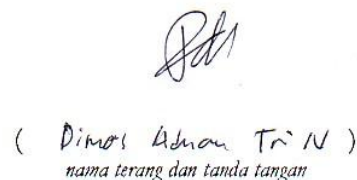 ( Dimas Adnan Tri N )
nama terang dan tanda tangan